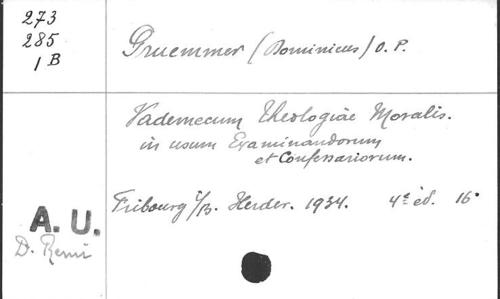 273
285
1 B
Pruemmer (Dominicus) O. P.
Vademecum Theologiae Moralis.
in usum Examinandorum
et Confessariorum.
Fribourg i/B. Herder. 1934. 4e éd. 16°
A. U.
D. Remi